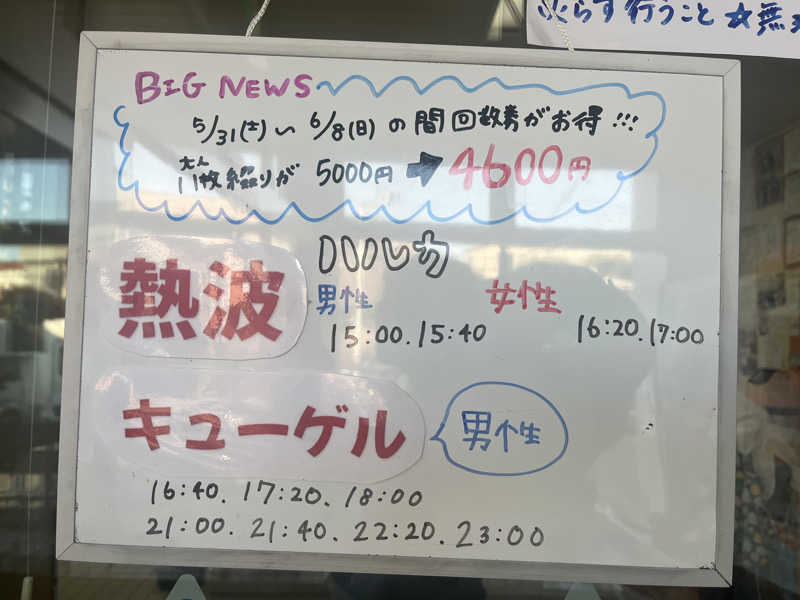 火らす行うこと ☆無
BIG NEWS
5/31(土)〜6/8(日)の間回数券がお得!!!
大人
11枚綴りが 5000円➡4600円
熱波
男性 女性
15:00. 15:40 16:20. 17:00
キューゲル
男性
16:40. 17:20. 18:00
21:00. 21:40. 22:20. 23:00